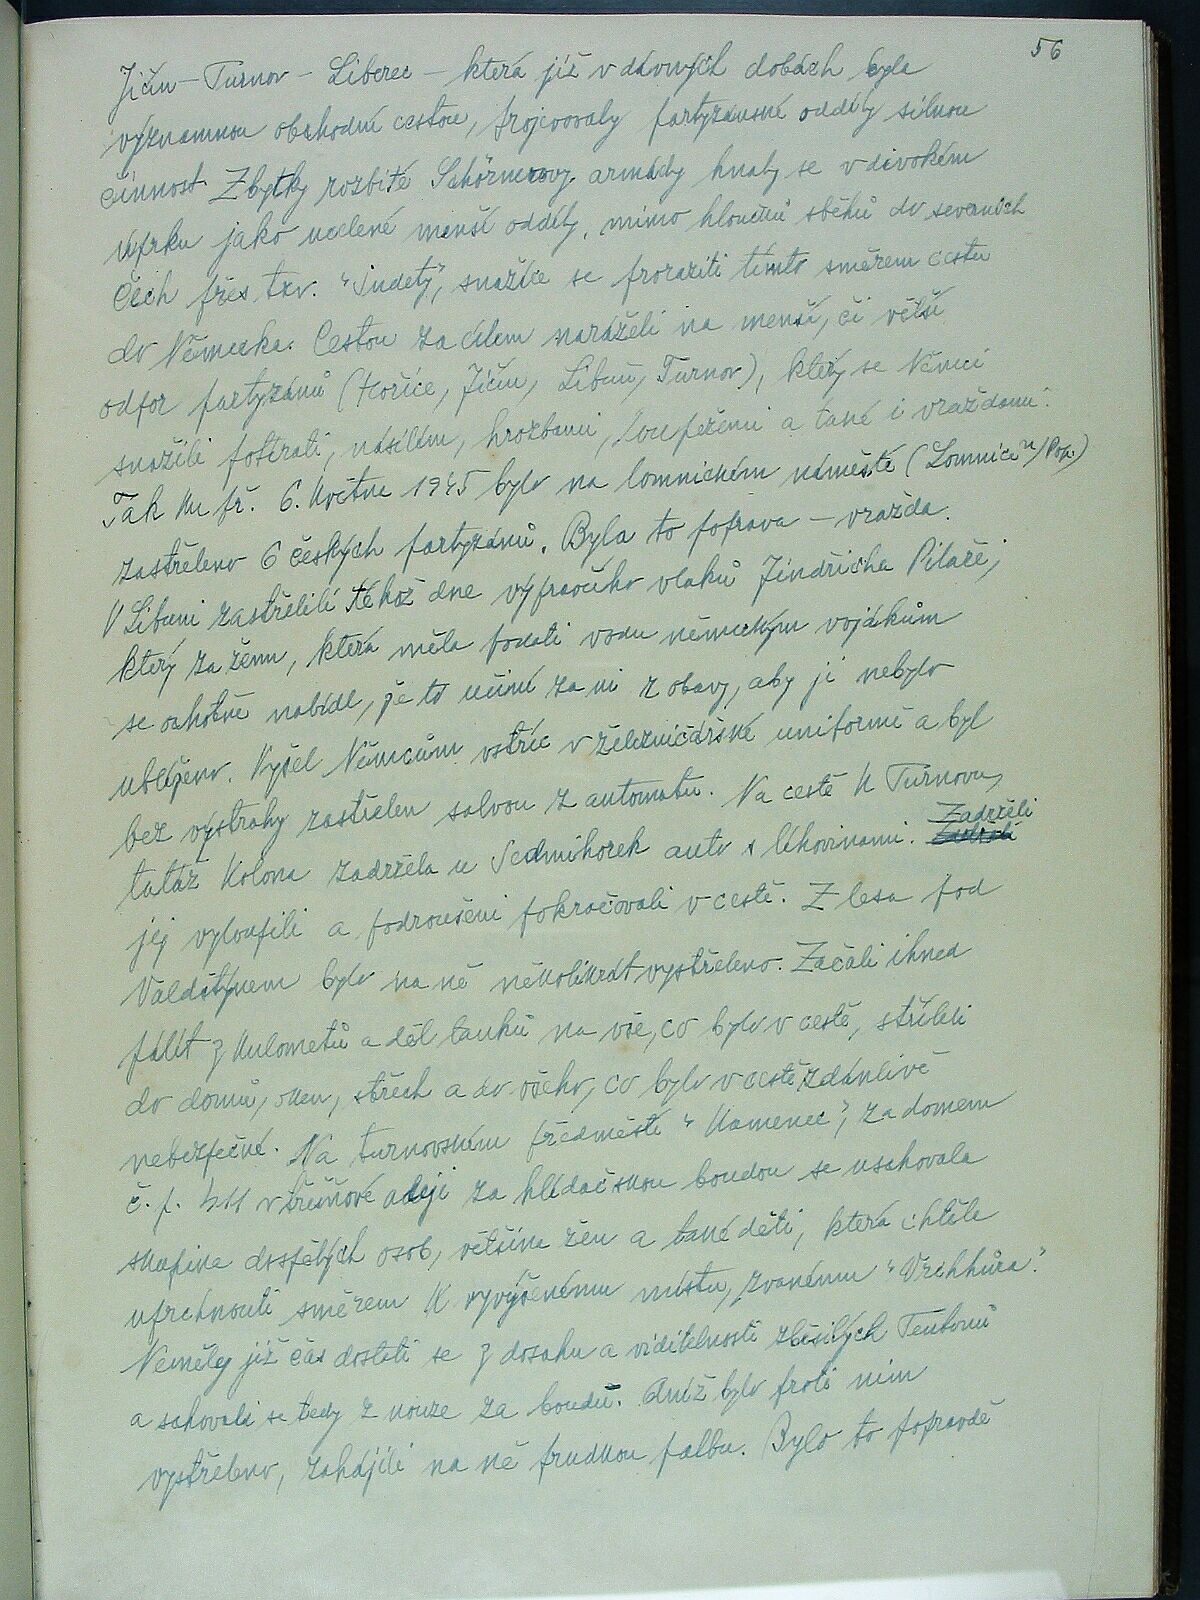 56
Jičín – Turnov – Liberec – která již v dávných dobách byla
významnou obchodní cestou, projevovaly partyzánské oddíly silnou
činnost. Zbytky rozbité Schörnerovy armády hnaly se v divokém
úprku jako ucelené menší oddíly, mimo hloučků sběhů do severních
Čech přes tzv. "Sudety", snažíce se proraziti tímto směrem cestu
do Německa. Cestou za cílem naráželi na menší, či větší
odpor partyzánů (Hořice, Jičín, Libuň, Turnov), který se Němci
snažili potírati, násilím, hrozbami, loupežemi a také i vraždami.
Tak ku př. 6. května 1945 bylo na lomnickém náměstí (Lomnice n/Pop.)
zastřeleno 6 českých partyzánů. Byla to poprava – vražda.
V Libuni zastřelili téhož dne výpravčího vlaků Jindřicha Pilaře,
který za ženu, která měla podati vodu německým vojákům
se ochotně nabídl, že to učiní za ni z obavy, aby jí nebylo
ublíženo. Vyšel Němcům vstříc v železničářské uniformě a byl
bez výstrahy zastřelen salvou z automatu. Na cestě k Turnovu,
tatáž kolona zadržela u Sedmihorek auto s lihovinami. Zadrželi
jej vyloupili a podroušeni pokračovali v cestě. Z lesa pod
Valdštýnem bylo na ně několikrát vystřeleno. Začali ihned
pálit z kulometů a děl tanků na vše, co bylo v cestě, stříleli
do domů, oken, střech a do všeho, co bylo v cestě zdánlivě
nebezpečné. Na turnovském předměstí "Kamenec", za domem
č. p. 411 v třešňové aleji za hlídačskou boudou se uschovala
skupina dospělých osob, většina žen a také dětí, která chtěla
uprchnouti směrem k vyvýšenému místu, zvanému "Vrchhůra."
Neměly již čas dostati se z dosahu a viditelnosti zběsilých Teutonů
a schovali se tedy z nouze za boudu. Aniž bylo proti nim
vystřeleno, zahájili na ně prudkou palbu. Bylo to popravdě